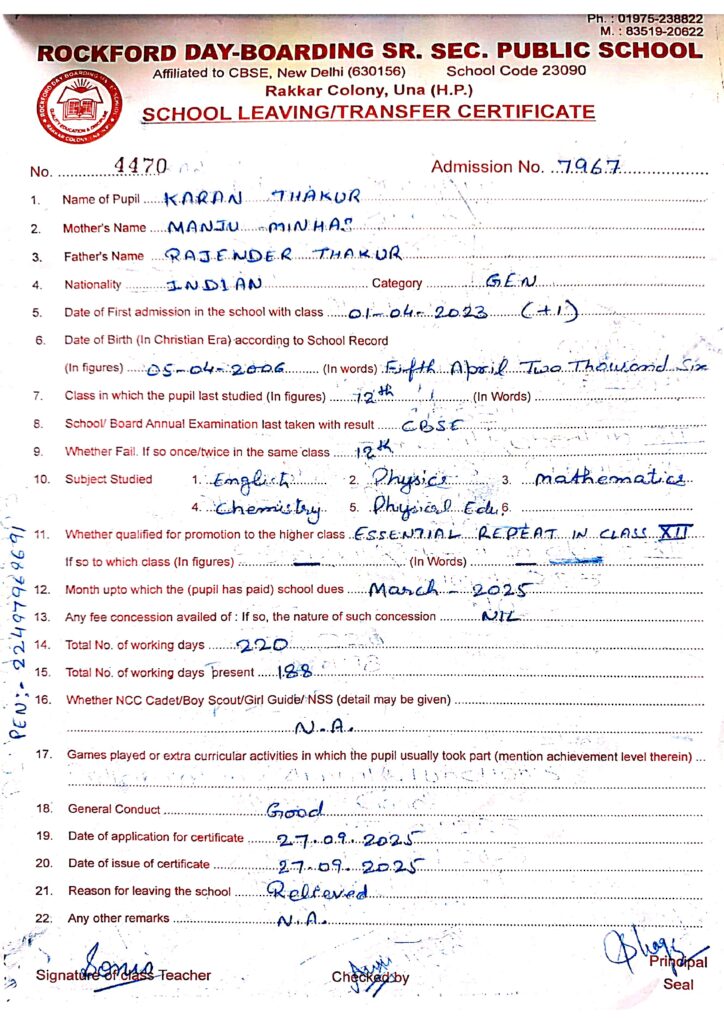 Ph. : 01975-238822
M. : 83519-20622
ROCKFORD DAY-BOARDING SR. SEC. PUBLIC SCHOOL
Affiliated to CBSE, New Delhi (630156) School Code 23090
Rakkar Colony, Una (H.P.)
SCHOOL LEAVING/TRANSFER CERTIFICATE
No. 4470 Admission No. 7967
1. Name of Pupil KARAN THAKUR
2. Mother's Name MANJU MINHAS
3. Father's Name RAJENDER THAKUR
4. Nationality INDIAN Category GEN
5. Date of First admission in the school with class 01-04-2023 (+1)
6. Date of Birth (In Christian Era) according to School Record
(In figures) 05-04-2006 (In words) Fifth April Two Thousand Six
7. Class in which the pupil last studied (In figures) 12th (In Words)
8. School/ Board Annual Examination last taken with result CBSE
9. Whether Fail. If so once/twice in the same class 12th
10. Subject Studied 1. English 2. Physics 3. Mathematics
4. Chemistry 5. Physical Edu. 6.
11. Whether qualified for promotion to the higher class ESSENTIAL REPEAT IN CLASS XII
If so to which class (In figures) — (In Words) —
12. Month upto which the (pupil has paid) school dues March - 2025
13. Any fee concession availed of : If so, the nature of such concession NIL
14. Total No. of working days 220
15. Total No. of working days present 188
16. Whether NCC Cadet/Boy Scout/Girl Guide/ NSS (detail may be given)
N.A.
17. Games played or extra curricular activities in which the pupil usually took part (mention achievement level therein)
18. General Conduct Good
19. Date of application for certificate 27.09.2025
20. Date of issue of certificate 27.09.2025
21. Reason for leaving the school Relieved
22. Any other remarks N.A.
Signature of class Teacher Checked by Principal
Seal
PEN:- 22497969691